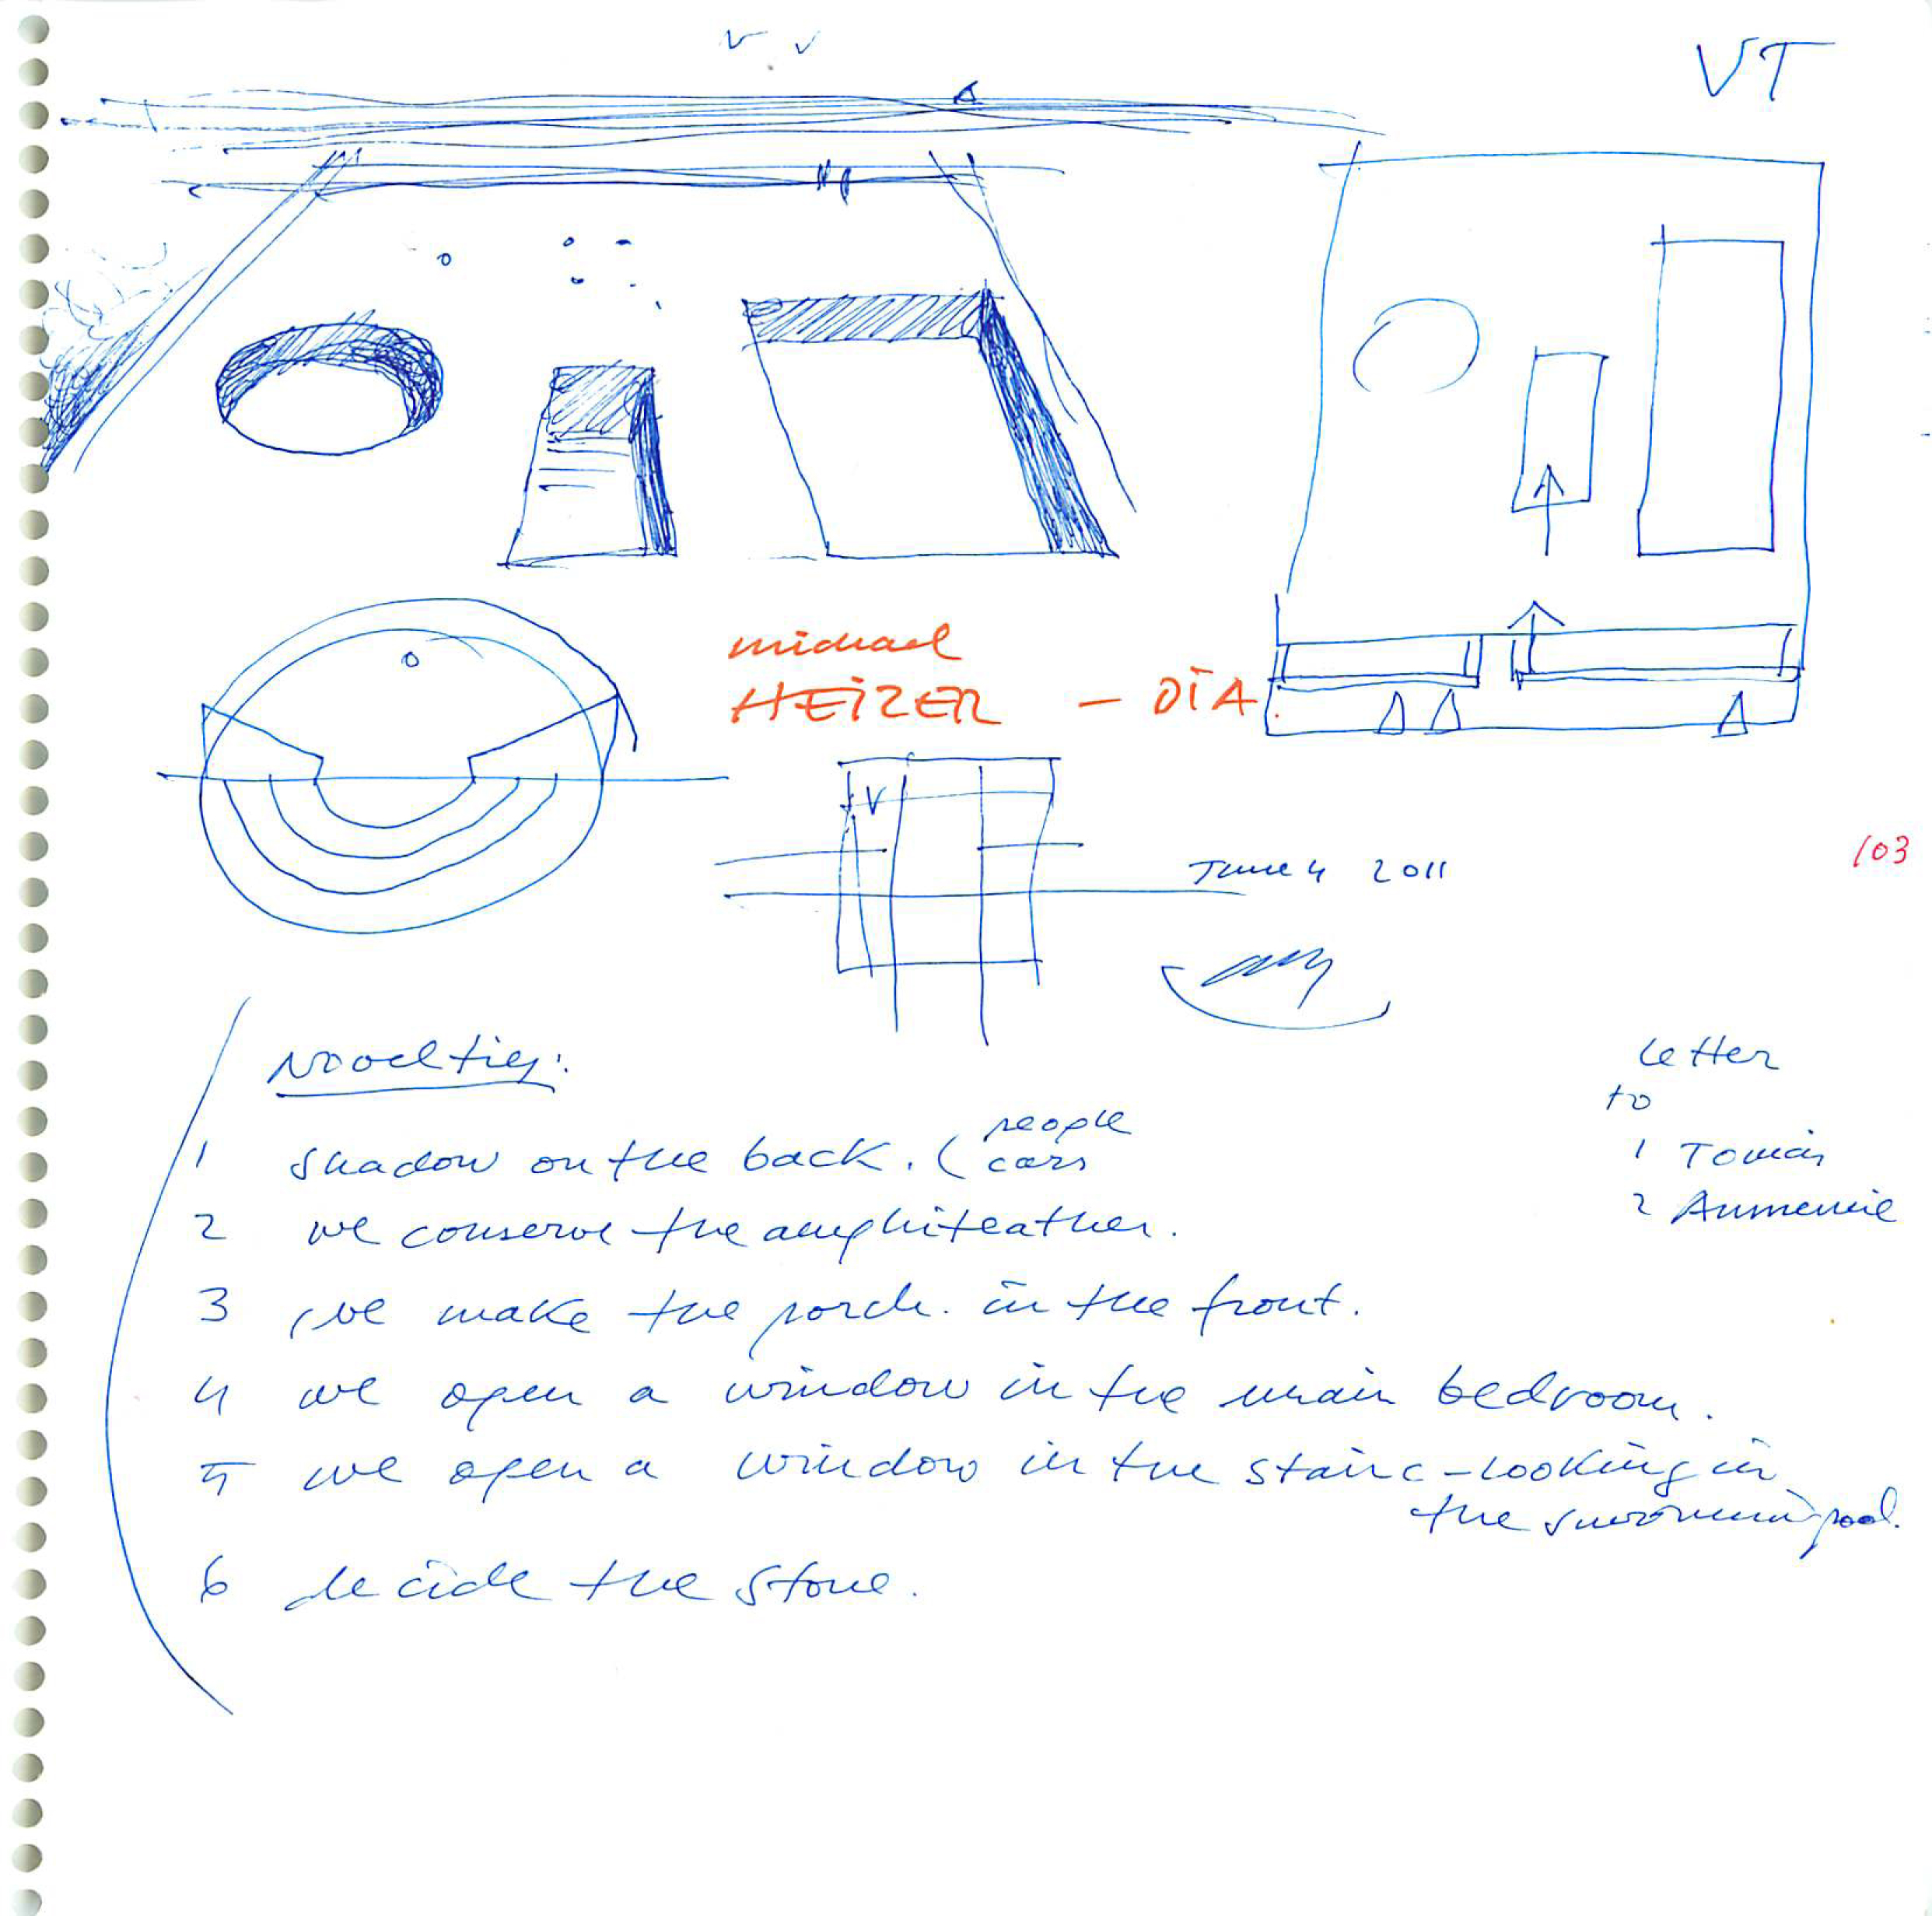 VT
michael
HEIZER - DIA.
June 4 2011
103
Novelties:
letter
to
1 Tomás
2 Annemie
1 shadow on the back. ( people
cars
2 we conserve the amphiteather.
3 we make the porch. in the front.
4 we open a window in the main bedroom.
5 we open a window in the stairc - looking in
the swimming pool.
6 decide the stone.